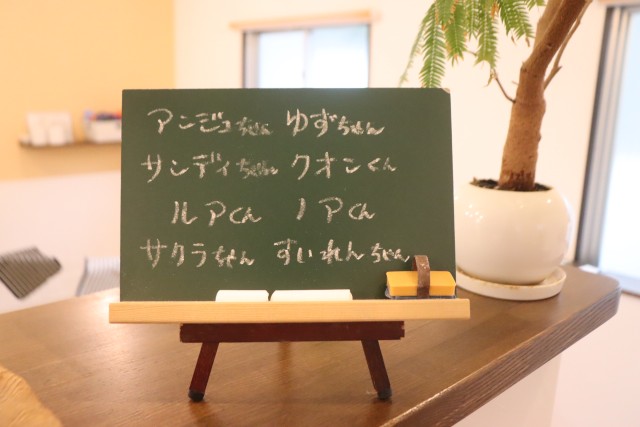 アンジュちゃん ゆずちゃん
サンディちゃん クオンくん
ルアくん ノアくん
サクラちゃん すいれんちゃん